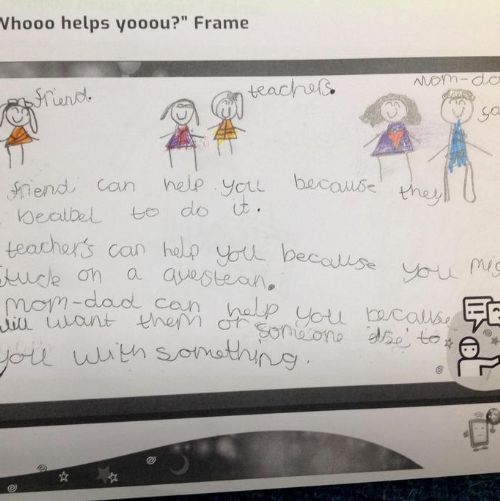 Whooo helps yooou?" Frame
friend.
teachers.
mom-da
friend can help you because they
bealbel to do it.
teacher's can help you because you mig
stuck on a questean.
mom-dad can help you because
will want them or someone else to
you with something.